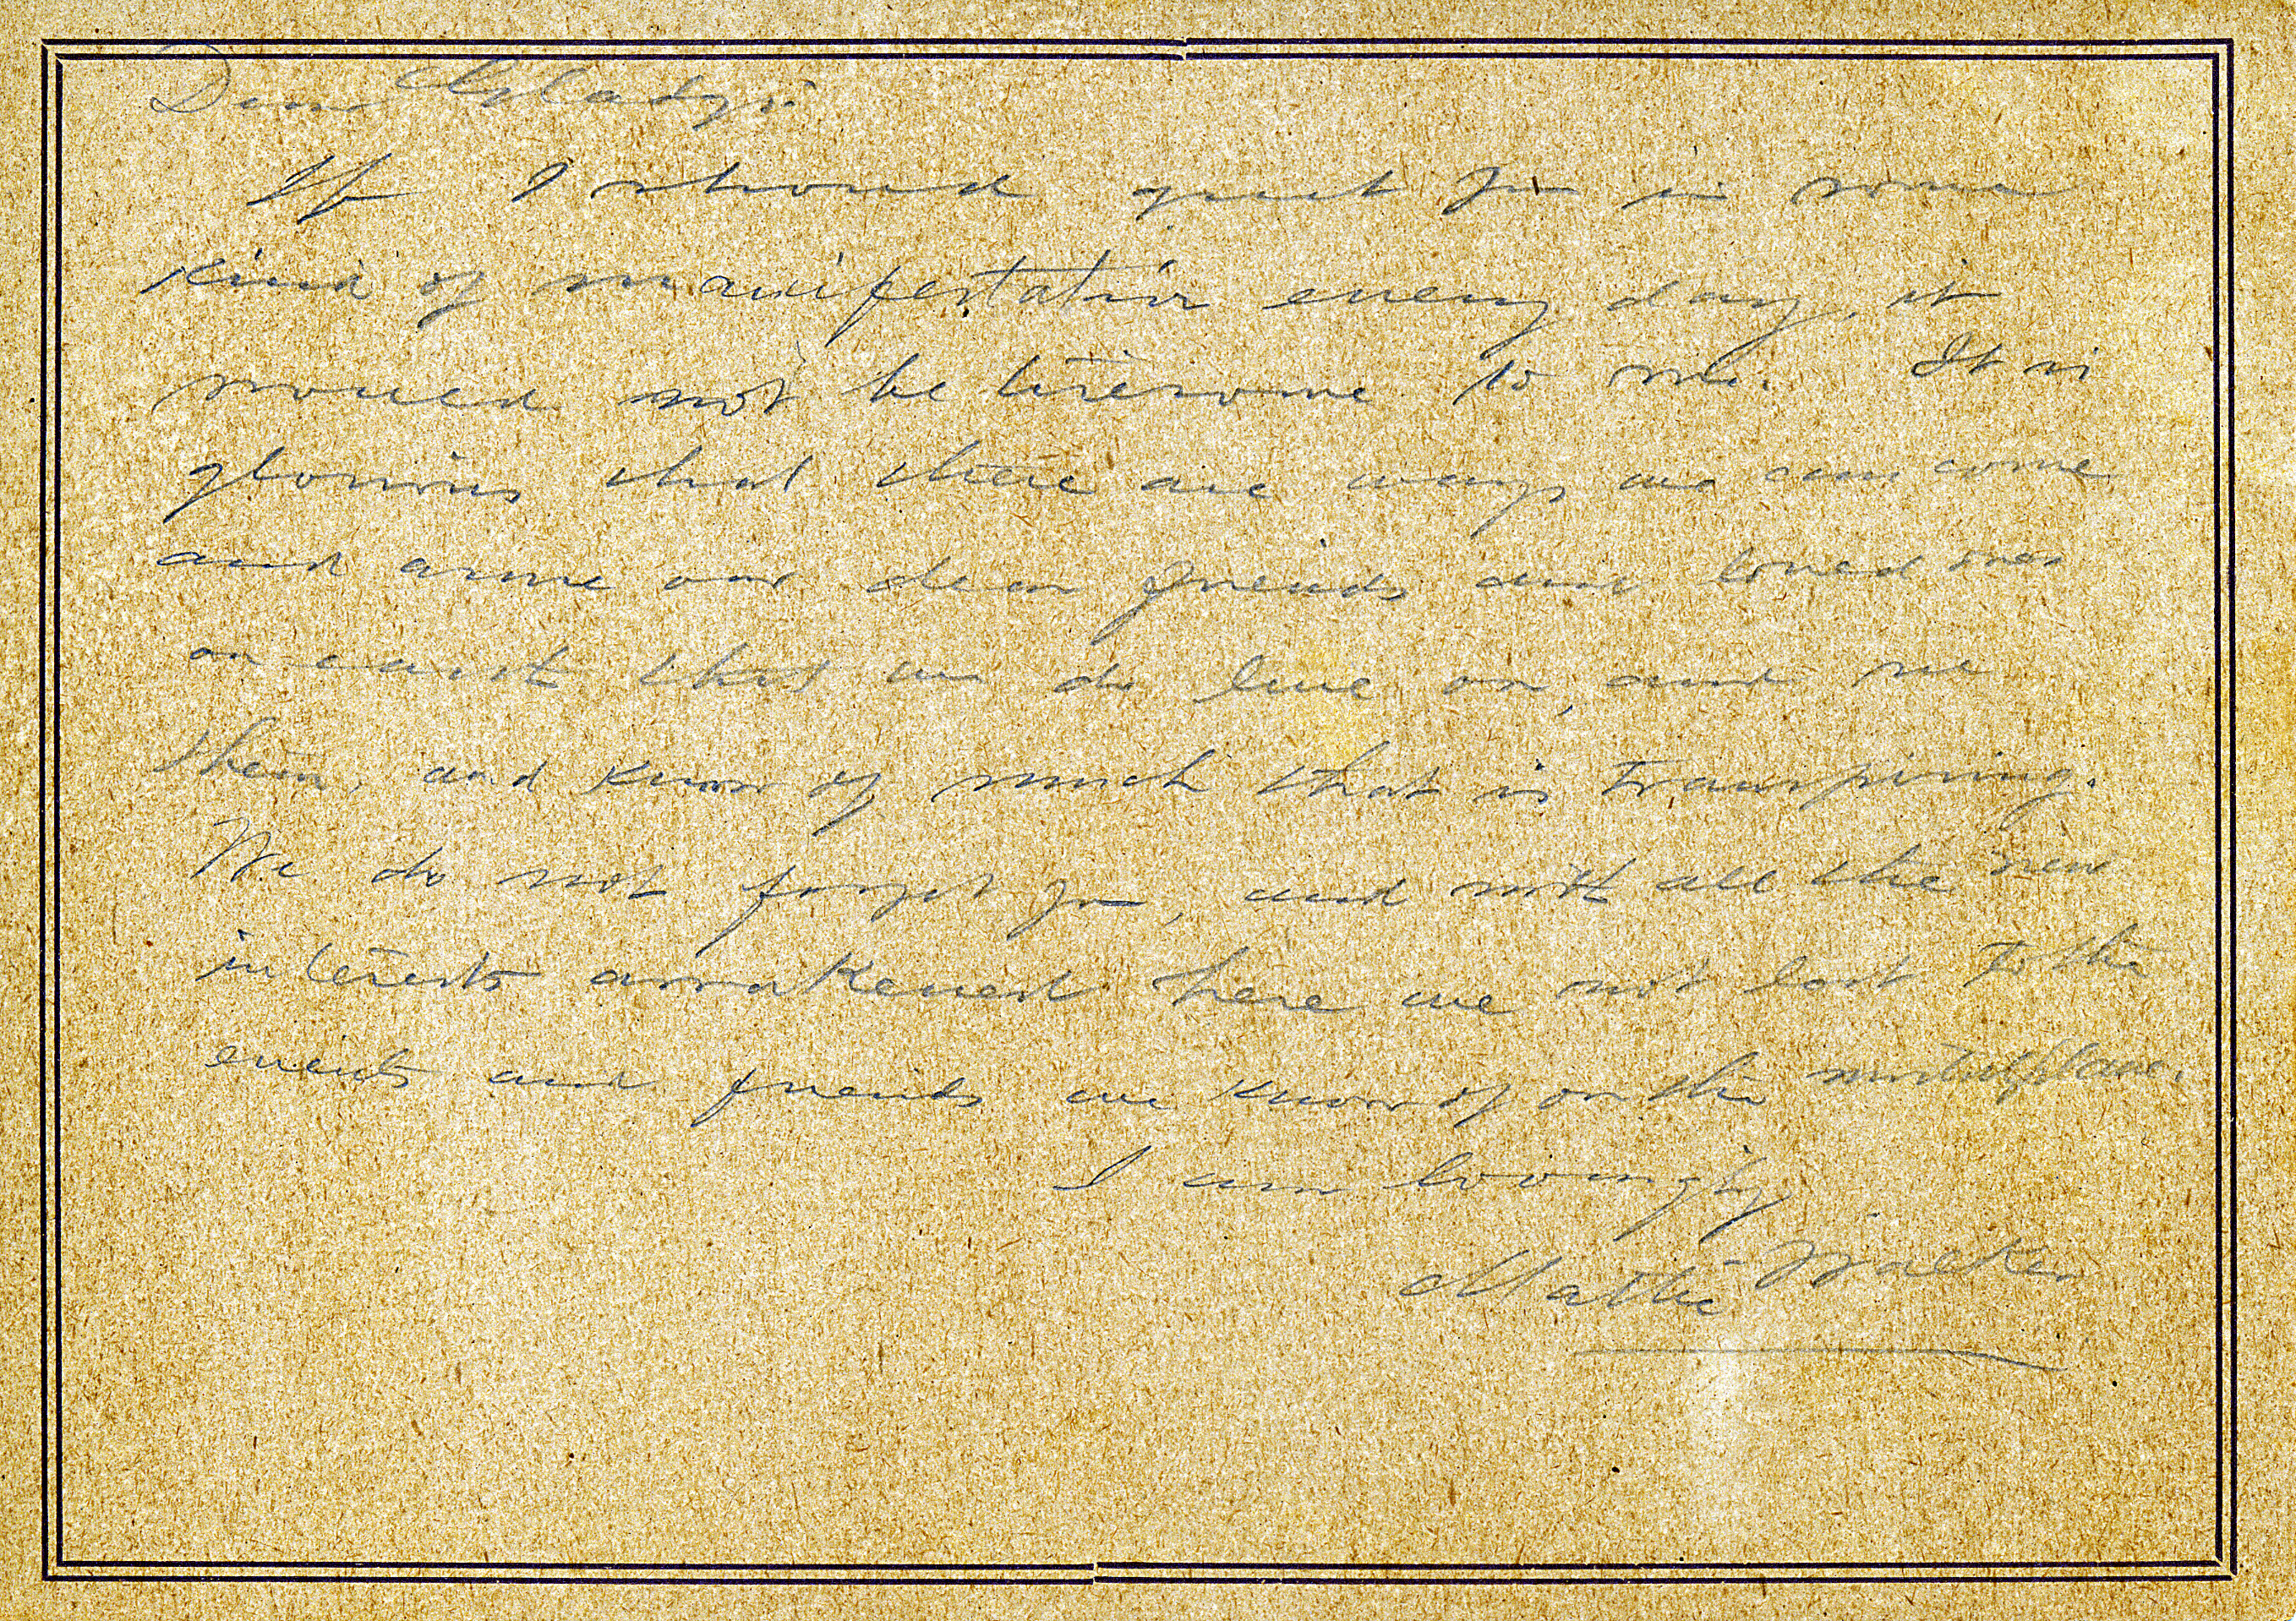 Dear Gladys:
If I should greet you in some
kind of manifestation every day, it
would not be tiresome to me. It is
glorious that there are ways we can come
and assure our dear friends and loved ones
on earth that we do live on, and see
them, and know of much that is transpiring.
We do not forget you, and with all the new
interests awakened here are not lost to the
events and friends we know of on the mortal plane.
I am lovingly
Mattie Walker